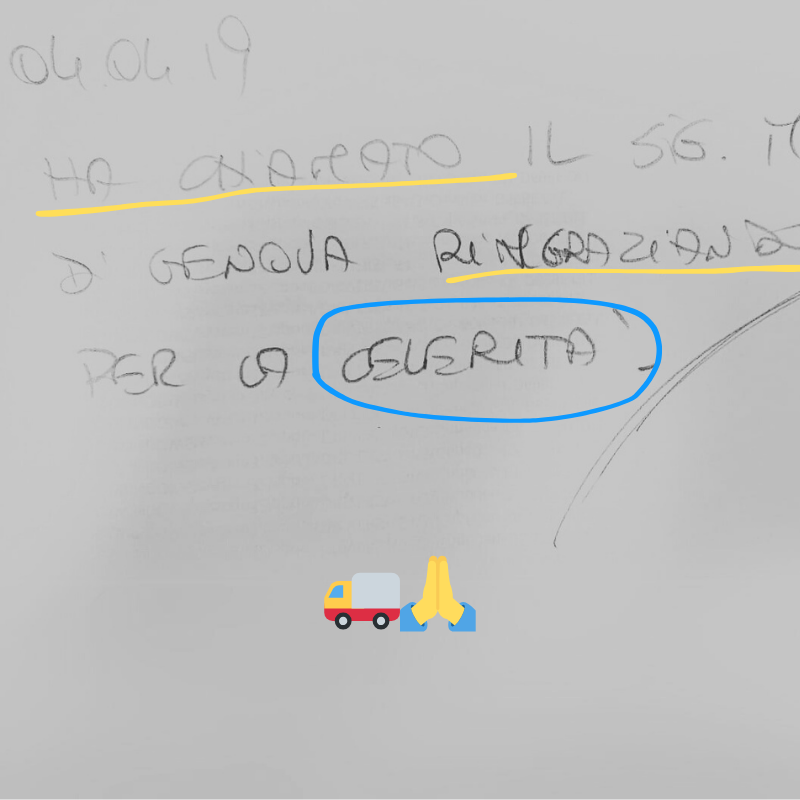 04.04.19
HA CHIAMATO IL SIG.
DI GENOVA RINGRAZIANDO
PER LA CELERITÀ